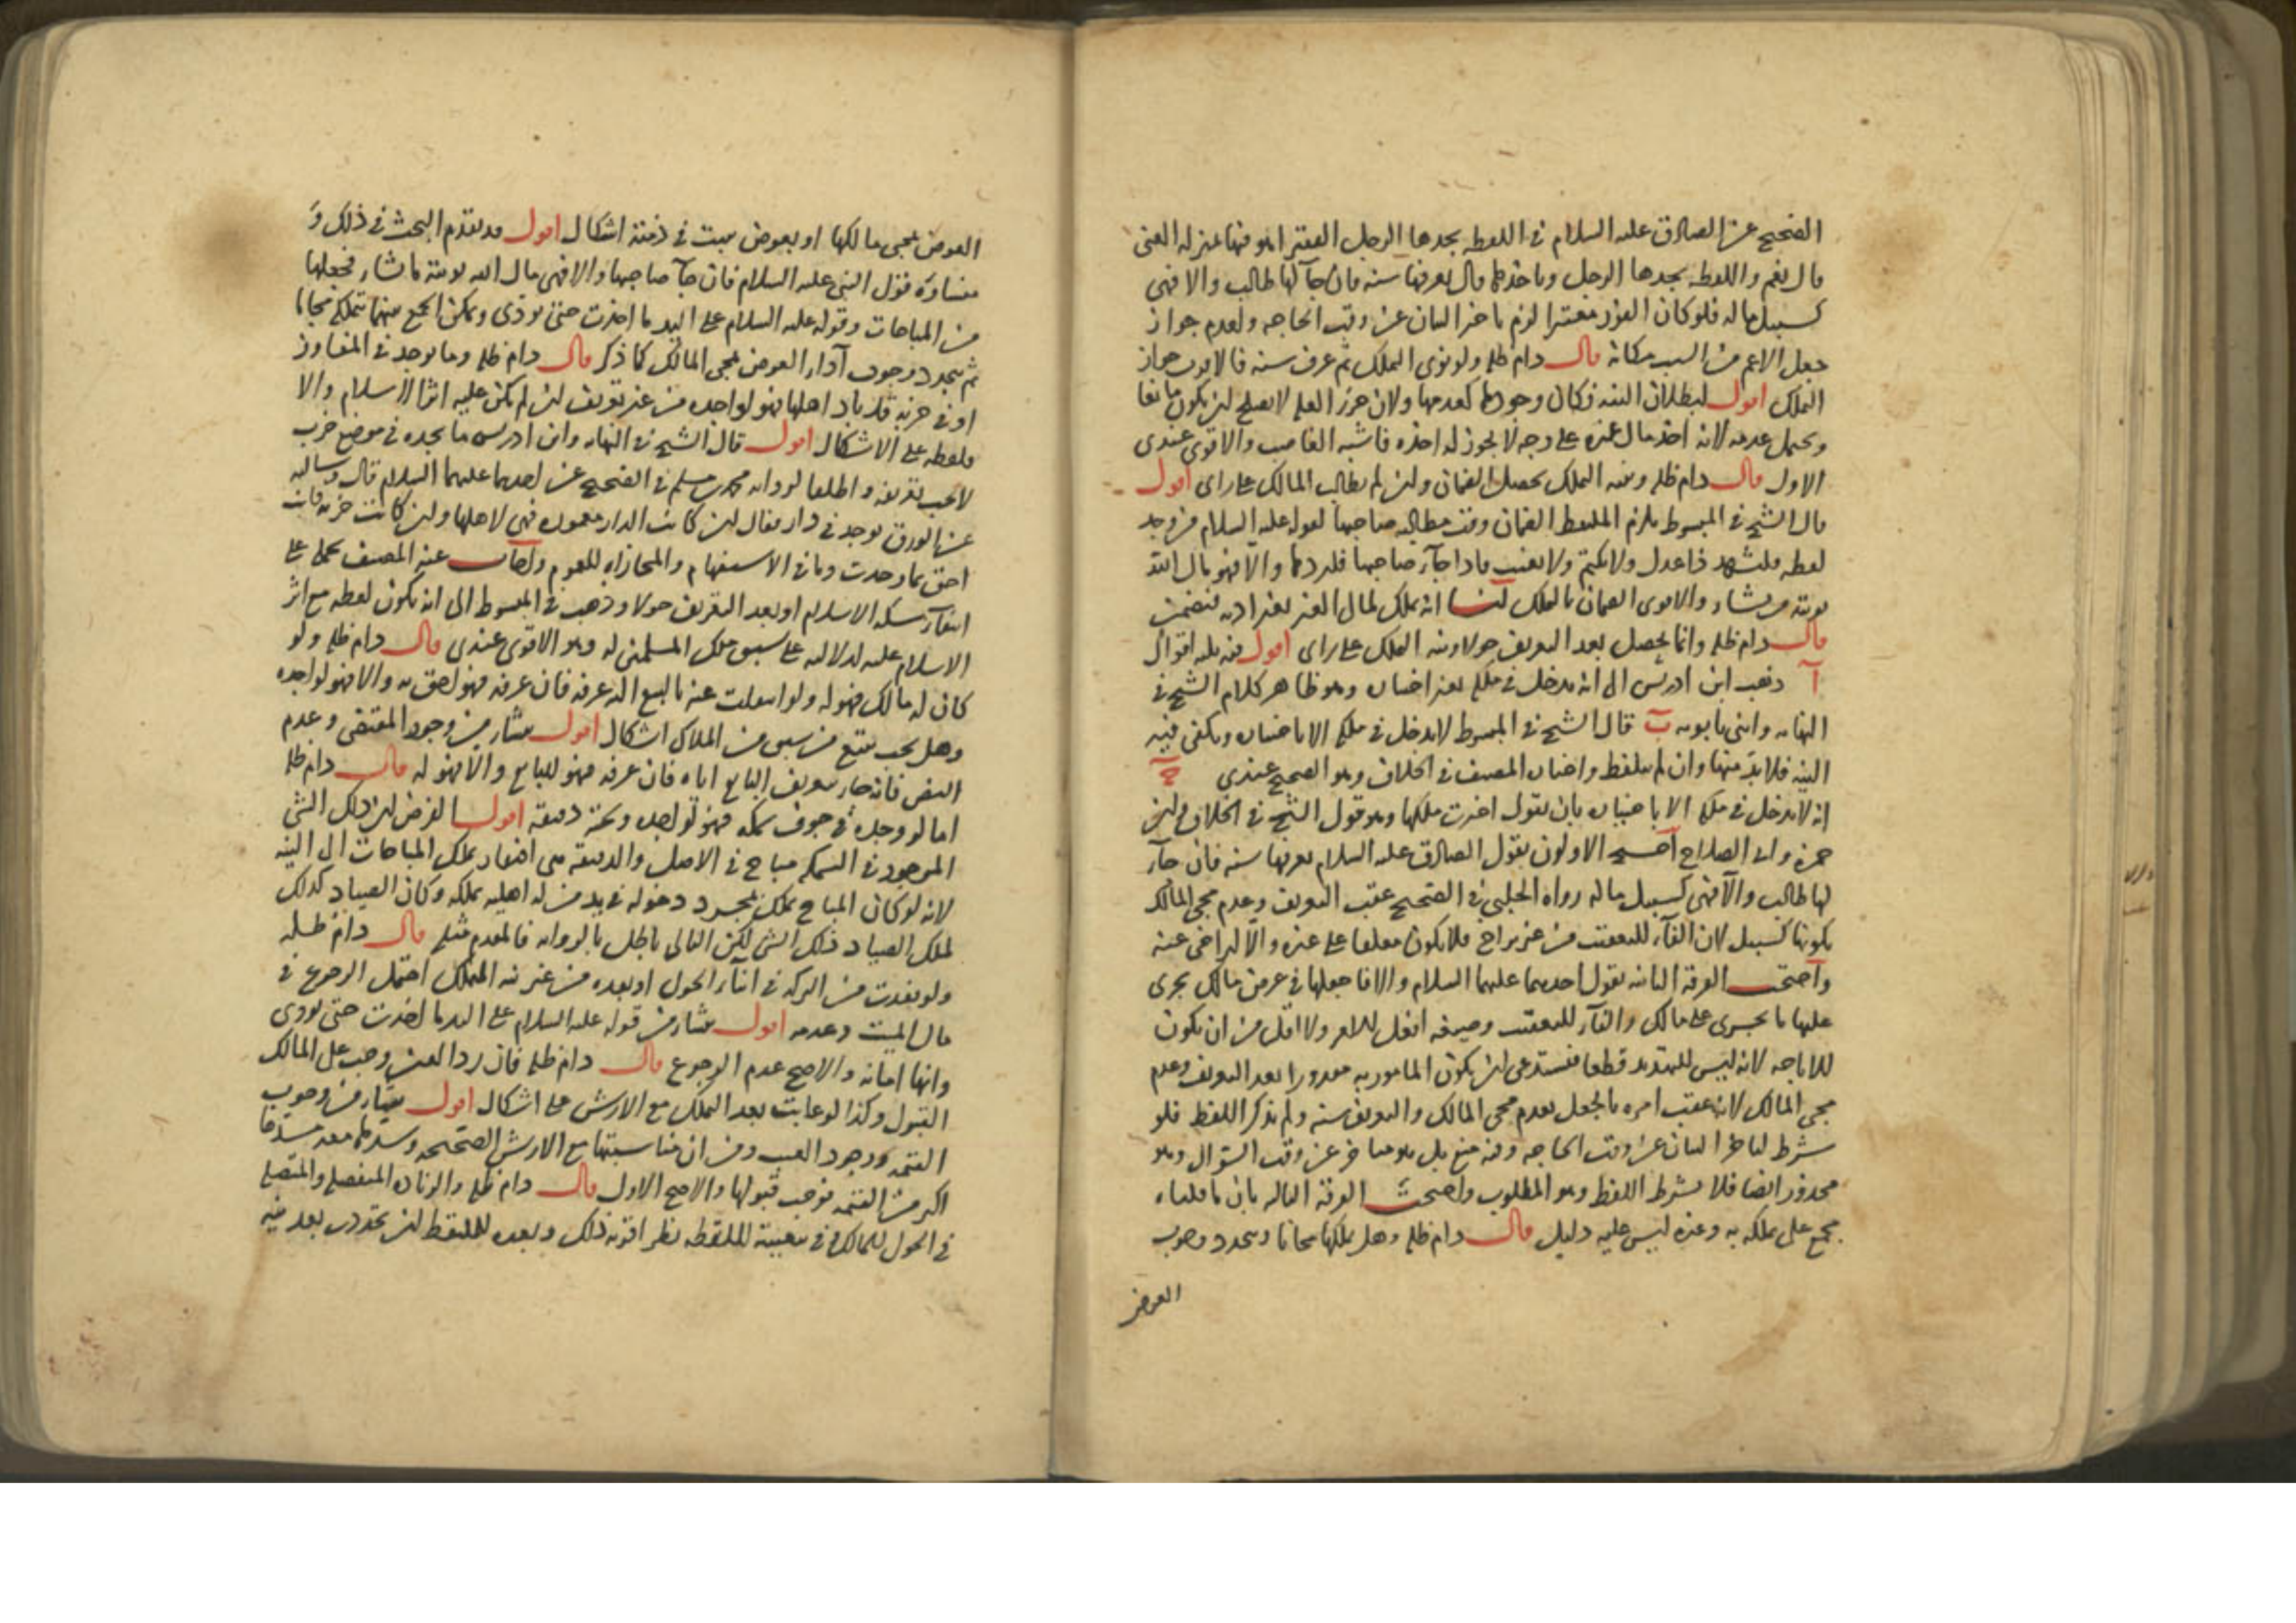 الصحيح عن الصادق عليه السلام في اللقطة يجدها الرجل الفقير اهو فيها بمنزلة الغنى
قال نعم واللقطة يجدها الرجل وياخذها قال يعرفها سنة فان جآء لها طالب والا فهى
كسبيل ماله فلو كان الفور معتبرا لزم تاخر البيان عن وقت الحاجة ولعدم جواز
جعل الاعم من السبب مكانه قال دام ظله ولو نوى التملك ثم عرف سنة فالاقرب جواز
التملك اقول لبطلان النية فكان وجودها كعدمها ولان حرز العلم لا يصلح لان يكون مانعا
ويحتمل عدمه لانه اخذ مال غيره على وجه لا يجوز له اخذه فاشبه الغاصب والاقوى عندى
الاول قال دام ظله ونية التملك يحصل الضمان وان لم يطالب المالك على راى اقول
قال الشيخ في المبسوط يلزم الملتقط الضمان وقت مطالبة صاحبها لقوله عليه السلام من وجد
لقطة فليشهد ذا عدل ولا يكتم ولا يغيب فاذا جآء صاحبها فليردها والا فهو مال الله
يؤتيه من يشاء والاقوى الضمان بالتملك لنا انه تملك لمال الغير بغير اذنه فيضمن
قال دام ظله وانما يحصل بعد التعريف حولا ونية التملك على راى اقول فيه ثلثة اقوال
آ ذهب ابن ادريس الى انه يدخل في ملكه بغير اختياره وهو ظاهر كلام الشيخ في
النهاية وابنى بابويه ب قال الشيخ في المبسوط لا يدخل في ملكه الا باختياره ويكفى فيه
النية فلا بد منها وان لم يتلفظ واختاره المصنف في الخلاف وهو الصحيح عندى ج
انه لا يدخل في ملكه الا باختياره بان يقول اخترت ملكها وهو قول الشيخ في الخلاف وابن
حمزة وابى الصلاح احتج الاولون بقول الصادق عليه السلام يعرفها سنة فان جآء
لها طالب والا فهى كسبيل ماله رواه الحلبى في الصحيح عقب التعريف وعدم مجى المالك
بكونها كسبيل لان الفآء للتعقيب من غير تراخ فلا يكون معلقا على غيره والا لتراخى عنه
واحتج الفرقة الثانية بقول احدهما عليهما السلام والا فاجعلها في عرض مالك يجرى
عليها ما يجرى على مالك والفآء للتعقيب وصيغة افعل للامر ولا اقل من ان يكون
للاباحة لانه ليس للتهديد قطعا فيستدعى ان يكون المامور به مقدورا بعد التعريف وعدم
مجى المالك لانه عقب امره بالجعل بعدم مجى المالك والتعريف سنة ولم يذكر اللفظ فلو
شرط لتاخر البيان عن وقت الحاجة وفيه منع بل هو تاخر عن وقت السؤال وهو
محذور ايضا فلا يشترط اللفظ وهو المطلوب واحتجت الفرقة الثالثة بان ما قلناه
مجمع على تملكه به وغيره ليس عليه دليل قال دام ظله وهل يملكها مجانا ويتجدد وجوب
العوض
العوض بمجى مالكها او بعوض يثبت في ذمته اشكال اقول قد تقدم البحث في ذلك و
منشاؤه قول النبى عليه السلام فان جآء صاحبها والا فهى مال الله يؤتيه من يشاء فجعلها
من المباحات وقوله عليه السلام على اليد ما اخذت حتى تؤدى ويمكن الجمع بينهما بتملكه مجانا
ثم يتجدد وجوب آداء العوض بمجى المالك كما ذكر قال دام ظله وما يوجد في المفاوز
او في خربة قد باد اهلها فهو لواجده من غير تعريف ان لم يكن عليه اثر الاسلام والا
فلقطة على الاشكال اقول قال الشيخ في النهاية وابن ادريس ما يجده في موضع خرب
لا يجب تعريفه واطلقا لرواية محمد بن مسلم في الصحيح عن احدهما عليهما السلام قال وسالته
عن الورق يوجد في دار فقال ان كانت الدار معمورة فهى لاهلها وان كانت خربة فانت
احق بما وجدت وما في الاستفهام والمجازاة للعموم واجاب عنه المصنف بحمله على
انتفآء سكة الاسلام او بعد التعريف حولا وذهب في المبسوط الى انه يكون لقطة مع اثر
الاسلام عليه لدلالته على سبق ملك المسلمين له وهو الاقوى عندى قال دام ظله ولو
كان له مالك فهو له ولو انتقلت عنه بالبيع اليه عرفه فان عرفه فهو احق به والا فهو لواجده
وهل يجب تتبع من سبق من الملاك اشكال اقول ينشاء من وجود المقتضى وعدم
النقض فانه جار تعريف البايع اياه فان عرفه فهو للبايع والا فهو له قال دام ظله
اما لو وجده في جوف سمكة فهو لواجده وتحته دقيقة اقول الغرض ان ذلك الشى
الموجود في السمكة مباح في الاصل والدقيقة هى افتقار تملك المباحات الى النية
لانه لو كان المباح يملك بمجرد دخوله في يد من له اهلية تملكه وكان الصياد كذلك
لملك الصياد ذلك الشى لكن التالى باطل بالرواية فالمقدم مثله قال دام ظله
ولو فقدت من التركة في اثناء الحول او بعده من غير نية التملك احتمل الرجوع في
مال الميت وعدمه اقول ينشاء من قوله عليه السلام على اليد ما اخذت حتى تؤدى
وانها امانة والاصح عدم الرجوع قال دام ظله فان رد العين وجب على المالك
القبول وكذا لو عابت بعد التملك مع الارش على اشكال اقول ينشاء من وجوب
القيمة ووجود العيب ومن ان مناسبتها مع الارش الصحيحة وسدها معه مسدها
اكثر من القيمة فوجب قبولها والاصح الاول قال دام ظله والزيادة المنفصلة والمتصلة
في الحول للمالك وفي تبعيته للقطة نظر اقربه ذلك وبعده للملتقط ان تجددت بعد نية